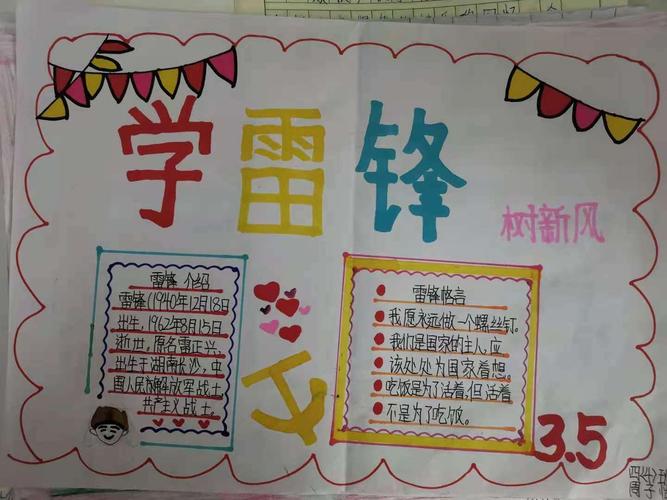 学雷锋
树新风
雷锋 介绍
雷锋(1940年12月18日
出生,1962年8月15日
逝世,原名雷正兴,
出生于湖南长沙,中
国人民解放军战士,
共产主义战士。
雷锋格言
我愿永远做一个螺丝钉。
我们是国家的主人,应
该处处为国家着想。
吃饭是为了活着,但活着
不是为了吃饭。
3.5